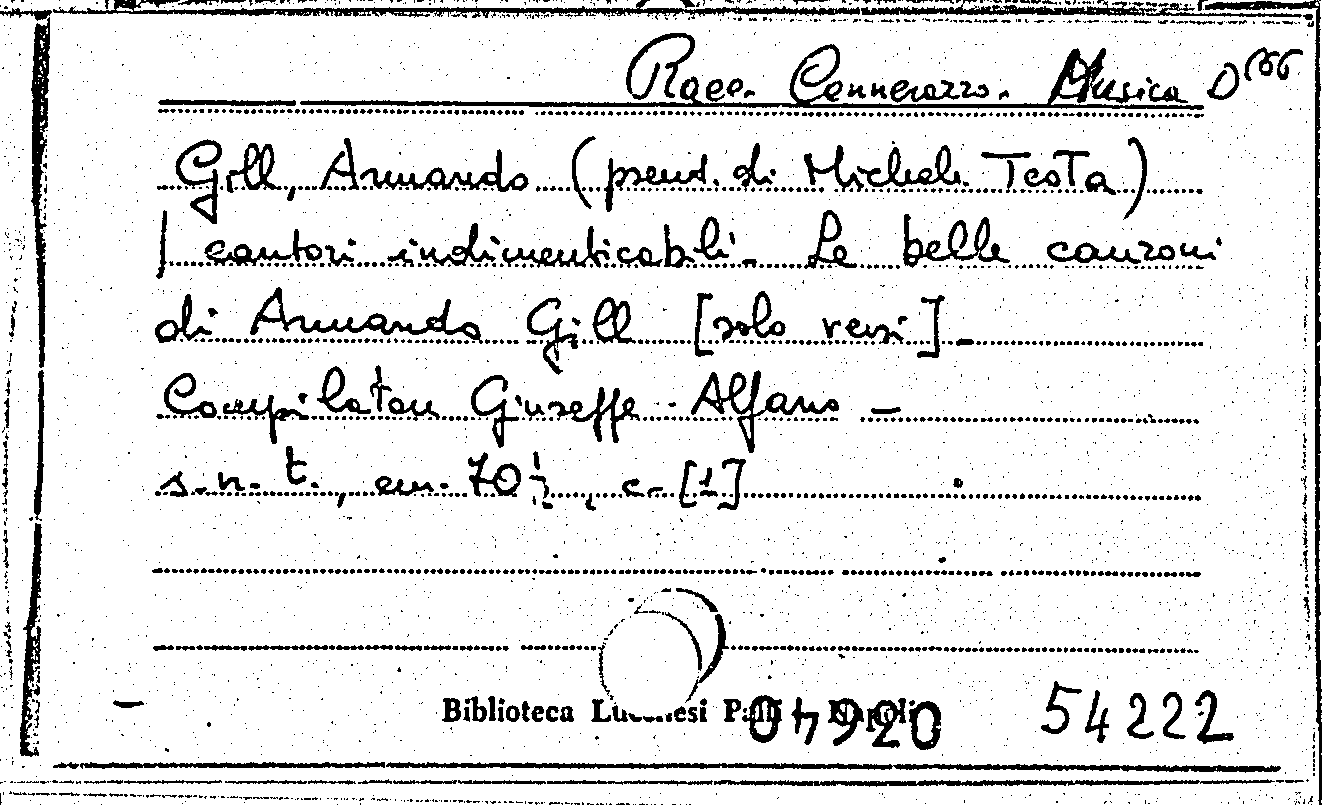 Racc. Cennerazzo. Musica D
Gill, Armando (pseud. di Michele Testa)
I cantori indimenticabili. Le belle canzoni
di Armando Gill [solo versi] -
Compilatore Giuseppe Alfano -
s.n.t., cm. 70 ½, c. [1]
Biblioteca Lucchesi Palli - Napoli
04920
54222